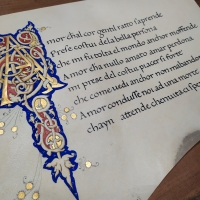 Amor ch'al cor gentil ratto s'aprende
Prese costui de la bella persona
che mi fu tolta el mondo anchor m'offende
Amor cha nullo amato amar perdona
mi prese del costui piacer si forte
che come vedi anchor non mabandona
Amor condusse noi ad una morte
chayn attende che nuita ci spense